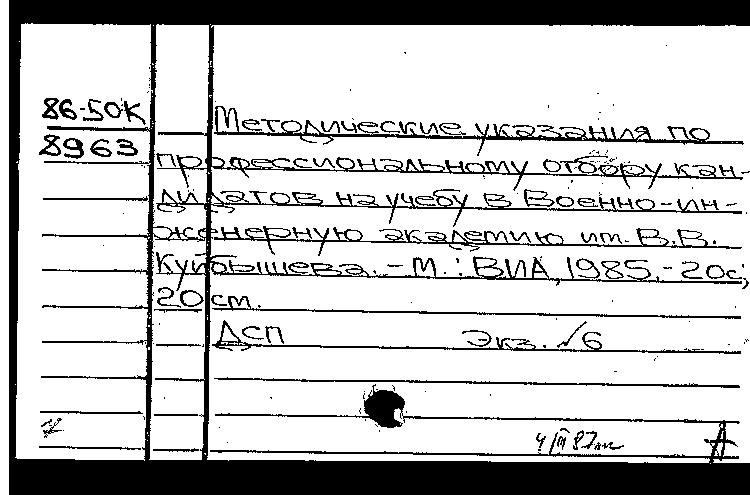 86-50К
8963
Методические указания по
профессиональному отбору кан-
дидатов на учебу в Военно-ин-
женерную академию им. В.В.
Куйбышева. – М. : ВИА, 1985. – 20с;
20 см.
ДСП Экз. №6
4/III 87
А